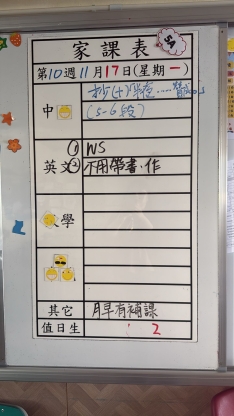 家課表
5A
第10週11月17日(星期一)
中
(5-6段)
① WS
英文② 不用帶書、作
學
其它 月早有補課
值日生 2